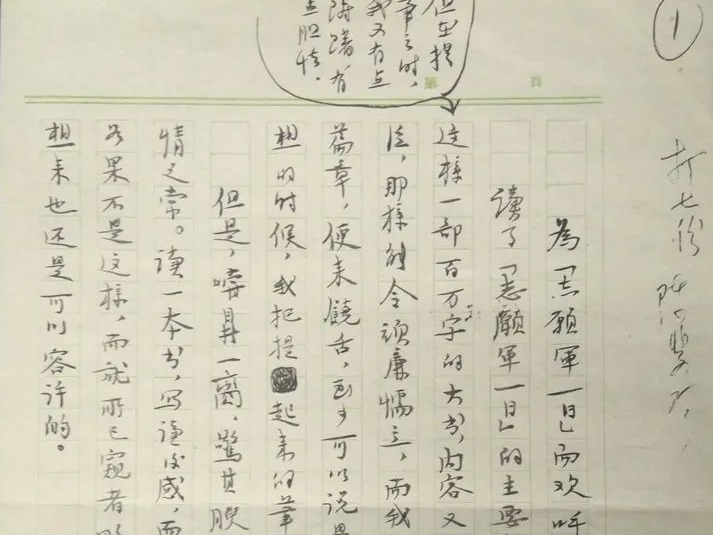 ①
打七份
但在提
筆之時，
我又有点
踌躇，有
点胆怯。
第 頁
為「志願軍一日」而欢呼
读了「志願軍一日」的主要
这样一部百万字的大书，内容又
注，那样的令顽廉懦立，而我
篇章，便来饶舌，至少可以说是
想的时候，我把提起来的筆
但是，嚐鼎一臠，
情之常。读一本书，写读后感，而
如果不是这样，而就所已窥者
想来也还是可以容许的。